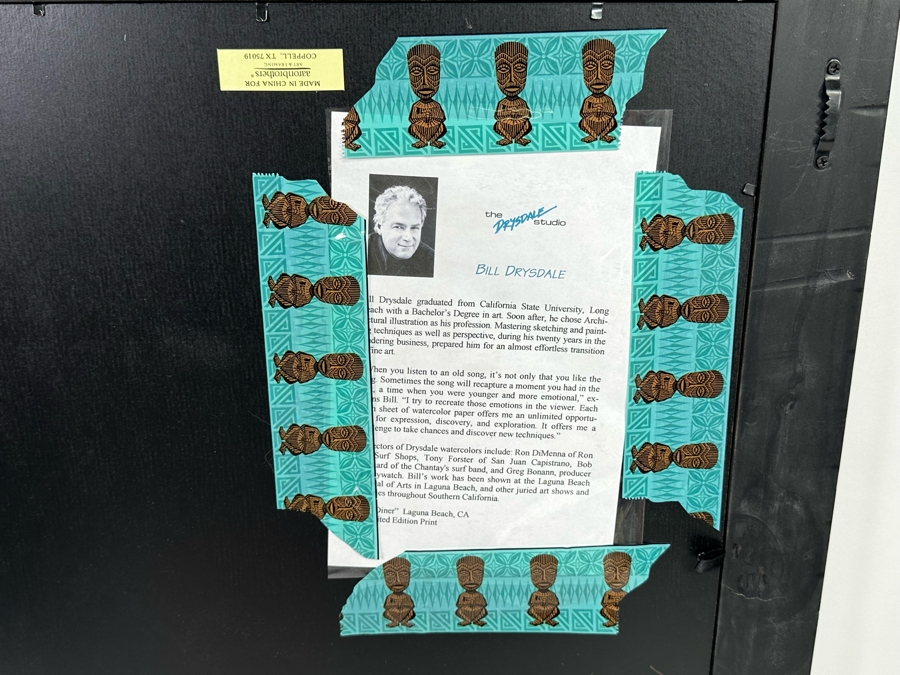 MADE IN CHINA FOR
aaronbrothers®
ART & FRAMING
COPPELL, TX 75019
the
DRYSDALE
studio
BILL DRYSDALE
ll Drysdale graduated from California State University, Long
each with a Bachelor's Degree in art. Soon after, he chose Archi-
ctural illustration as his profession. Mastering sketching and paint-
techniques as well as perspective, during his twenty years in the
ndering business, prepared him for an almost effortless transition
fine art.
hen you listen to an old song, it's not only that you like the
g. Sometimes the song will recapture a moment you had in the
, a time when you were younger and more emotional," ex-
ns Bill. "I try to recreate those emotions in the viewer. Each
sheet of watercolor paper offers me an unlimited opportu-
for expression, discovery, and exploration. It offers me a
enge to take chances and discover new techniques."
ectors of Drysdale watercolors include: Ron DiMenna of Ron
Surf Shops, Tony Forster of San Juan Capistrano, Bob
ard of the Chantay's surf band, and Greg Bonann, producer
ywatch. Bill's work has been shown at the Laguna Beach
al of Arts in Laguna Beach, and other juried art shows and
es throughout Southern California.
Diner" Laguna Beach, CA
ited Edition Print